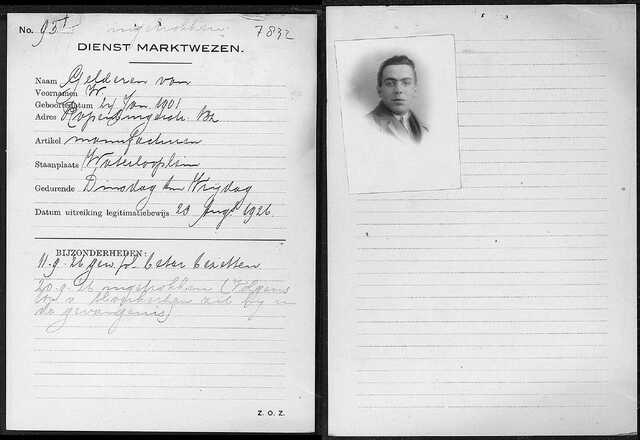 No. 95 ingetrokken. 7832
DIENST MARKTWEZEN.
Naam Gelderen van
Voornamen W.
Geboortedatum Jan. 1901
Adres
Artikel manufacturen
Staanplaats Waterlooplein
Gedurende Dinsdag Vrijdag
Datum uitreiking legitimatiebewijs 20 Aug 1926.
BIJZONDERHEDEN:
11.9.26 gew. beter bezetten
20.9.26 ingetrokken (Volgens
zit hij in
de gevangenis)
Z. O. Z.